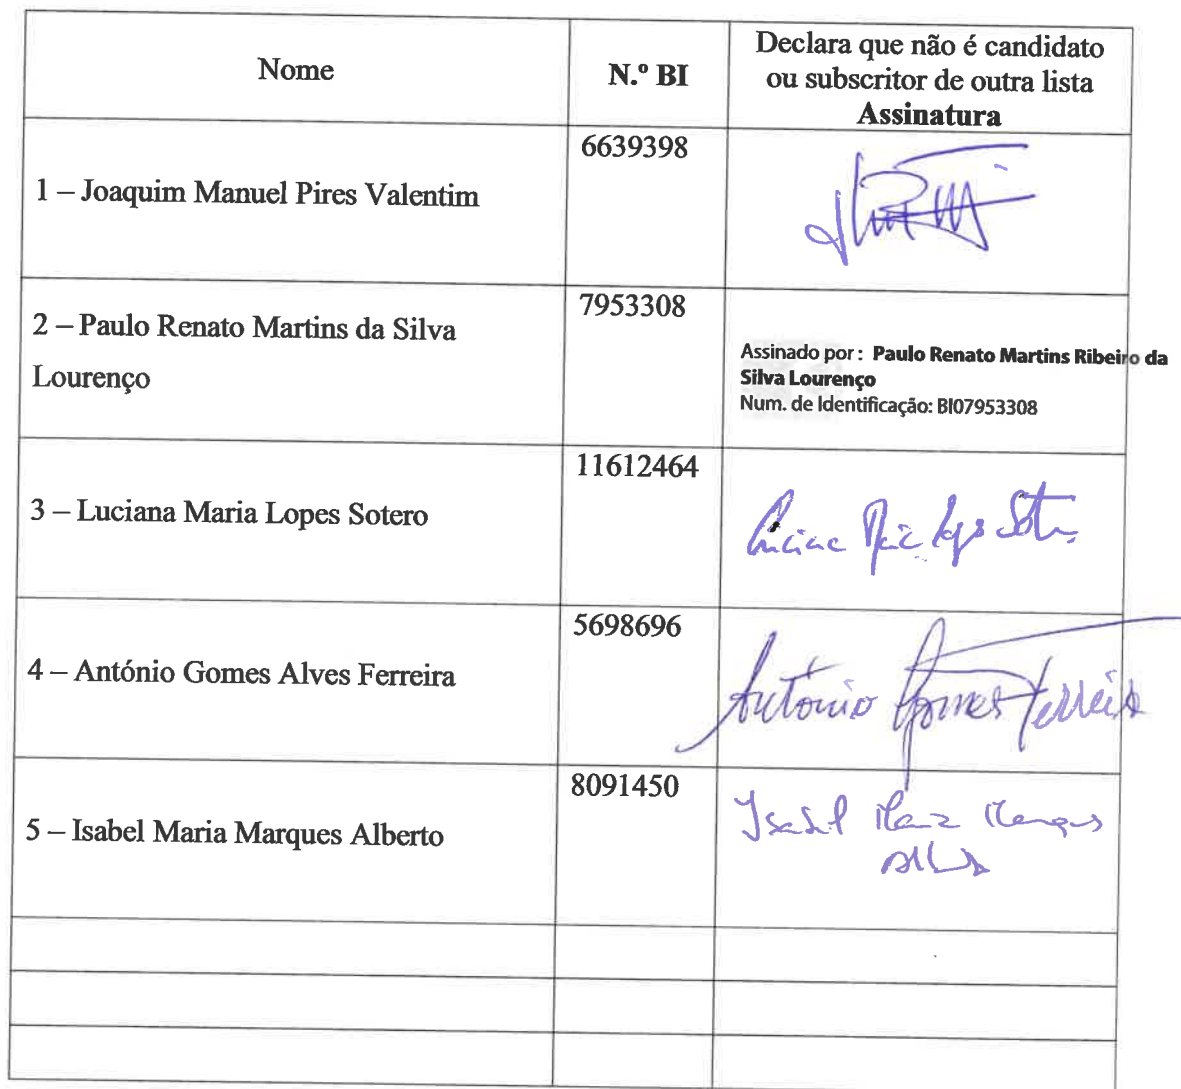 Nome
N.º BI
Declara que não é candidato
ou subscritor de outra lista
Assinatura
1 – Joaquim Manuel Pires Valentim
6639398
2 – Paulo Renato Martins da Silva
Lourenço
7953308
Assinado por : Paulo Renato Martins Ribeiro da
Silva Lourenço
Num. de Identificação: BI07953308
3 – Luciana Maria Lopes Sotero
11612464
Luciana Maria Lopes Sotero
4 – António Gomes Alves Ferreira
5698696
António Gomes Ferreira
5 – Isabel Maria Marques Alberto
8091450
Isabel Maria Marques
Alberto